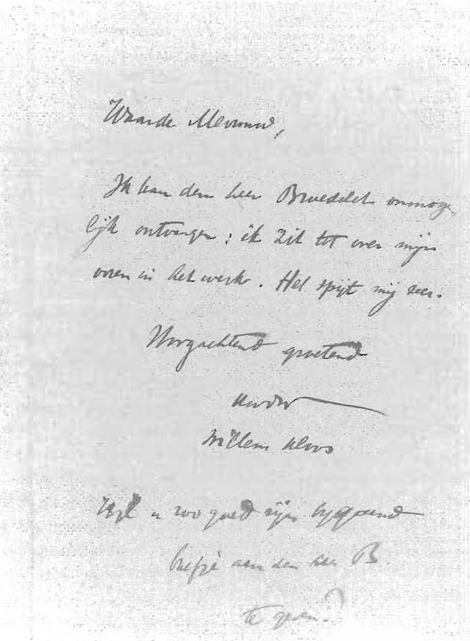 Waarde Mevrouw,
Ik kan den heer Broedelet onmoge-
lijk ontvangen: ik zit tot over mijn
ooren in het werk. Het spijt mij zeer.
Hoogachtend groetend
Willem Kloos
Wilt u zoo goed zijn bijgaand
briefje aan den heer B.
te geven?